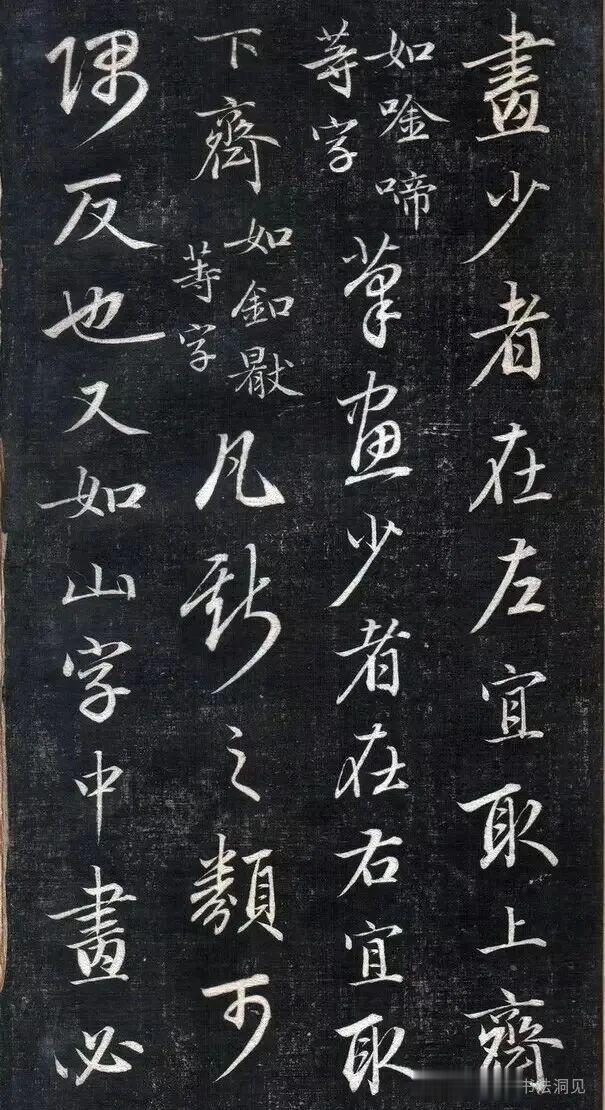 畫少者在左宜取上齊
如唫啼
等字
筆畫少者在右宜取
下齊
如釦
等字
凡斯之類可
隅反也又如山字中畫必
书法洞见